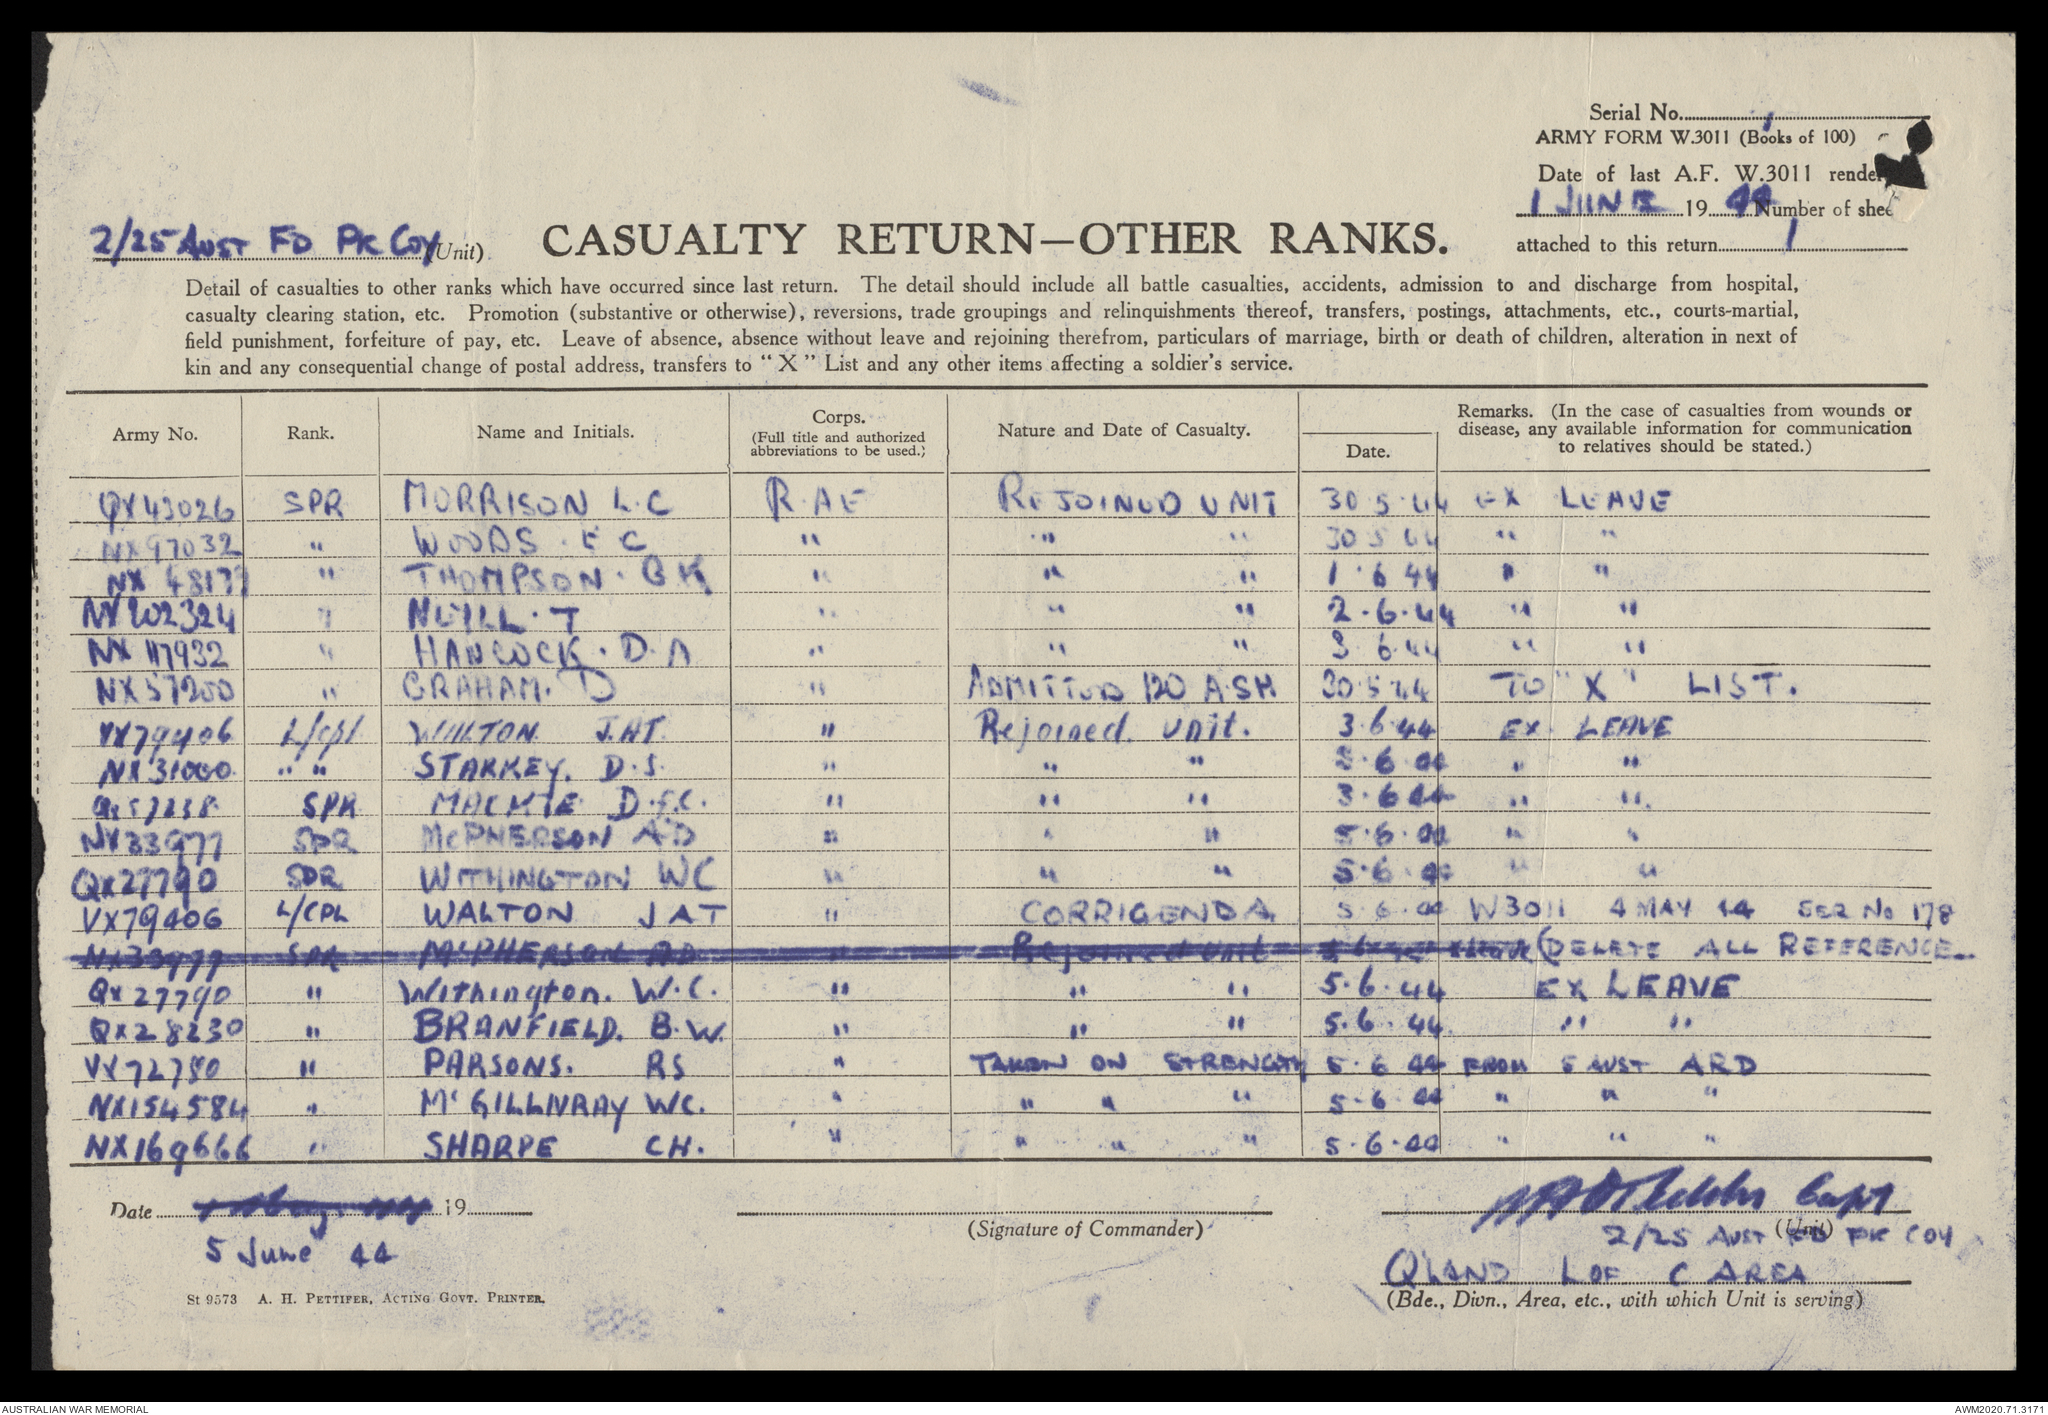 Serial No.
ARMY FORM W.3011 (Books of 100)
Date of last A.F. W.3011 rende
1 JUNE 19 44 Number of shee
attached to this return 1
2/25 AUST FD PK COY (Unit)
CASUALTY RETURN—OTHER RANKS.
Detail of casualties to other ranks which have occurred since last return. The detail should include all battle casualties, accidents, admission to and discharge from hospital,
casualty clearing station, etc. Promotion (substantive or otherwise), reversions, trade groupings and relinquishments thereof, transfers, postings, attachments, etc., courts-martial,
field punishment, forfeiture of pay, etc. Leave of absence, absence without leave and rejoining therefrom, particulars of marriage, birth or death of children, alteration in next of
kin and any consequential change of postal address, transfers to "X" List and any other items affecting a soldier's service.
Army No. Rank. Name and Initials. Corps. (Full title and authorized abbreviations to be used.) Nature and Date of Casualty. Date. Remarks. (In the case of casualties from wounds or disease, any available information for communication to relatives should be stated.)
QX43026 SPR MORRISON L.C R.AE REJOINED UNIT 30.5.44 EX LEAVE
NX97032 " WOODS. E C " " " 30 5 44 " "
NX " THOMPSON. G K " " " 1.6 44 " "
NX202324 " NEILL. T " " " 2.6.44 " "
NX 117932 " HANCOCK. D.A " " " 3 6.44 " "
NX57200 " GRAHAM. D " ADMITTED 120 A.S.H 30.5.44 TO "X" LIST.
VX79406 L/Cpl WALTON J.A.T. " Rejoined Unit. 3.6.44 EX. LEAVE
NX31000 " " STARKEY. D.S. " " " 6.44 " "
SPR MACKIE D.F.C. " " " 3.6.44 " "
NX33977 SPR McPHERSON A D " " " 5.6.44 " "
QX27790 SPR WITHINGTON WC " " " 5.6.44 " "
VX79406 L/CPL WALTON J A T " CORRIGENDA 5.6.44 W3011 4 MAY 44 SER No 178
NX33977 SPR McPHERSON AD " Rejoined Unit (DELETE ALL REFERENCE..
QX27790 " Withington. W.C. " " " 5.6.44 EX LEAVE
QX28230 " BRANFIELD. B.W. " " " 5.6.44. " "
VX72780 " PARSONS. RS " TAKEN ON STRENGTH 5.6 44 FROM 5 AUST ARD
NX154584 " McGILLIVRAY WC. " " " " 5.6.44 " " "
NX169666 " SHARPE CH. " " " " 5.6.44 " " "
Date 19
5 June 44
(Signature of Commander)
Capt
(Unit)
2/25 AUST FD PK COY
Q'LAND L OF C AREA
(Bde., Divn., Area, etc., with which Unit is serving)
St 9573 A. H. PETTIFER, ACTING GOVT. PRINTER.
AUSTRALIAN WAR MEMORIAL
AWM2020.71.3171